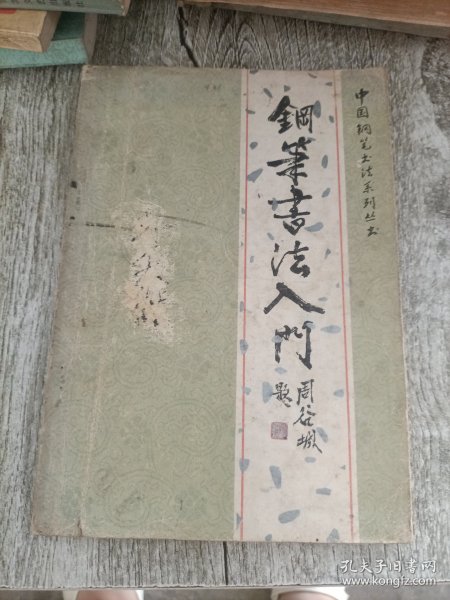 中国钢笔书法系列丛书
鋼筆書法入門
周谷城
题
孔夫子旧书网
book.kongfz.com